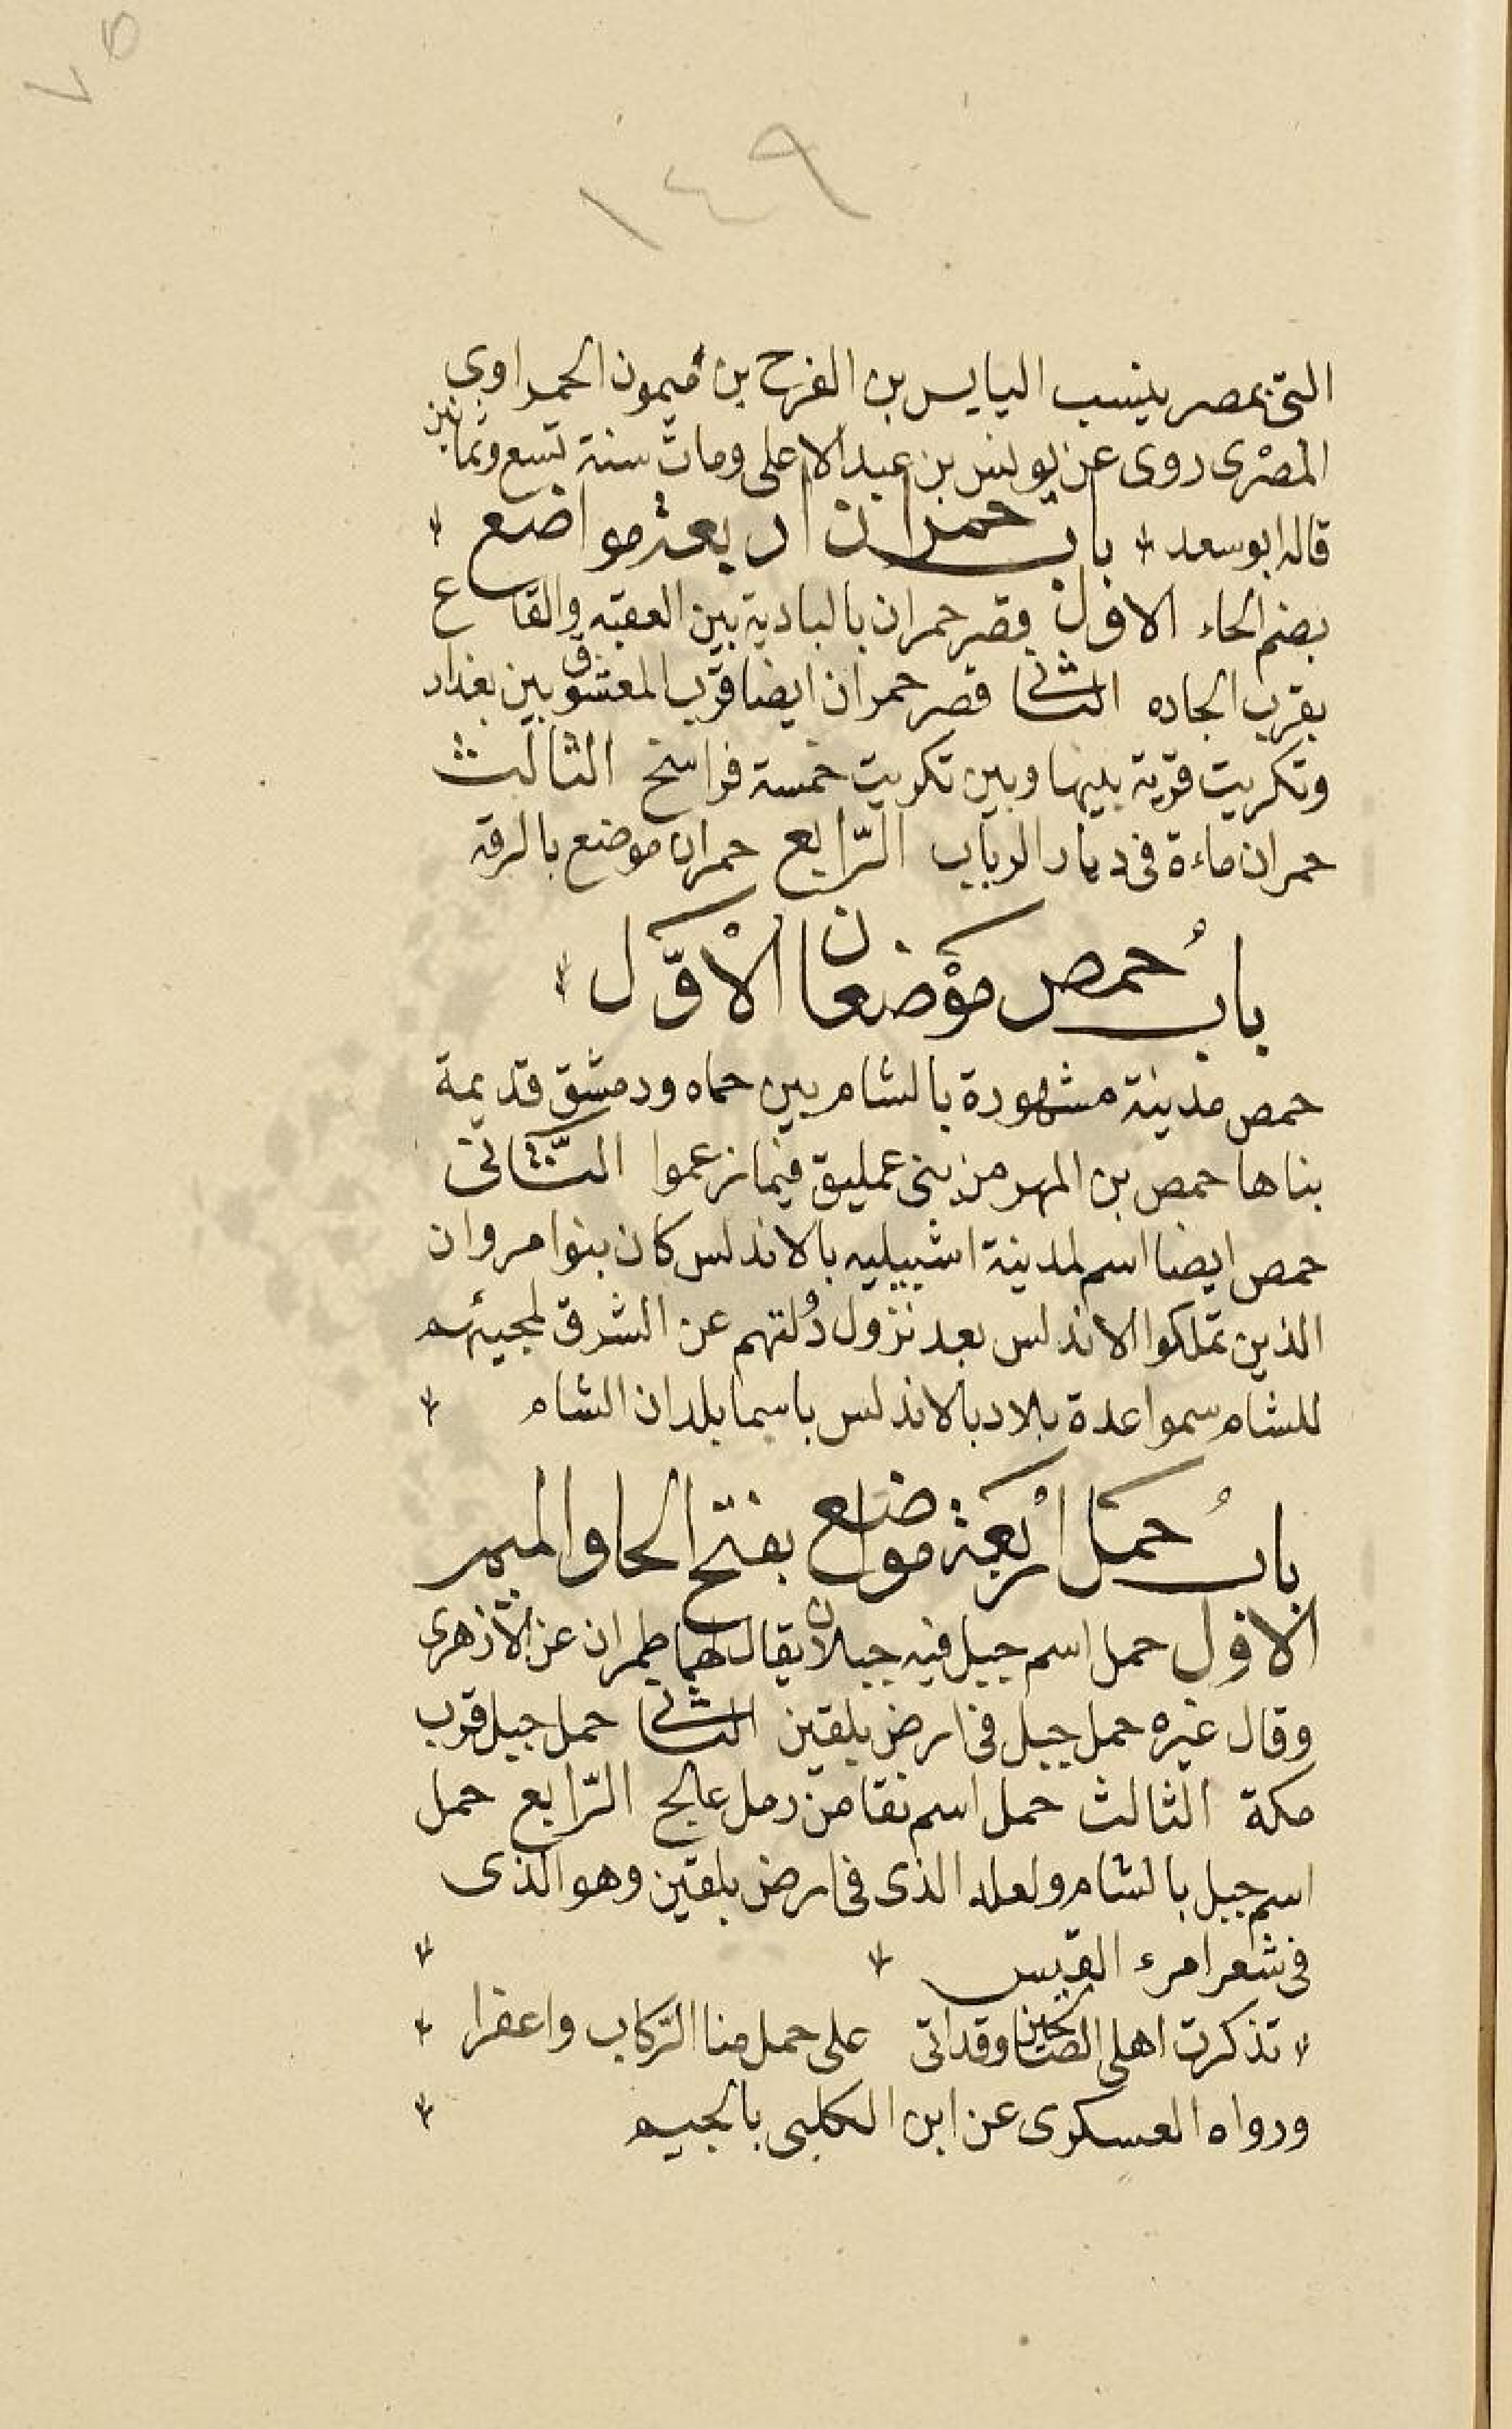 ٧٥
١٤٩
التى بمصر ينسب اليايس بن الفرح بن ميمون الحمراوى
المصْرى روى عن يونس بن عبد الاعلى ومات سنة تسع وثمانين
قاله ابو سعد باب حمران اربعة مواضع
بضم الحاء الاول قصر حمران بالبادية بين العقبة والقاع
بقرب الجاده الثانى قصر حمران ايضا قرب المعشوق بين بغداد
وتكريت قرية بينها وبين تكريت خمسة فراسخ الثالث
حمران ماءة فى ديار الرباب الرّابع حمران موضع بالرقه
بابُ حمص موْضعان الْاوّل
حمص مدينة مشهورة بالشام بين حماه ودمشق قديمة
بناها حمص بن المهر من بنى عمليق فيما زعموا الثّانى
حمص ايضا اسم لمدينة اشبيليه بالاندلس كان بنوا مروان
الذين تملكوا الاندلس بعد نزول دُلتهم عن الشرق لمجيئهم
للشام سموا عدة بلاد بالاندلس باسما بلدان الشام
بابُ حمل ارْبعة مواضع بفتح الحا والميم
الاول حمل اسم جبل فيه جبلان يقال لهما طمران عن الأزهرى
وقال غيره حمل جبل فى ارض بلقين الثانى حمل جبل قرب
مكة الثالث حمل اسم نقا من رمل عالج الرّابع حمل
اسم جبل بالشام ولعله الذى فى ارض بلقين وهو الذى
فى شعر امرء القيس
تذكرت اهلى الصالحين وقد اتى على حمل منا الرّكاب واعفرا
ورواه العسكرى عن ابن الكلبى بالجيم